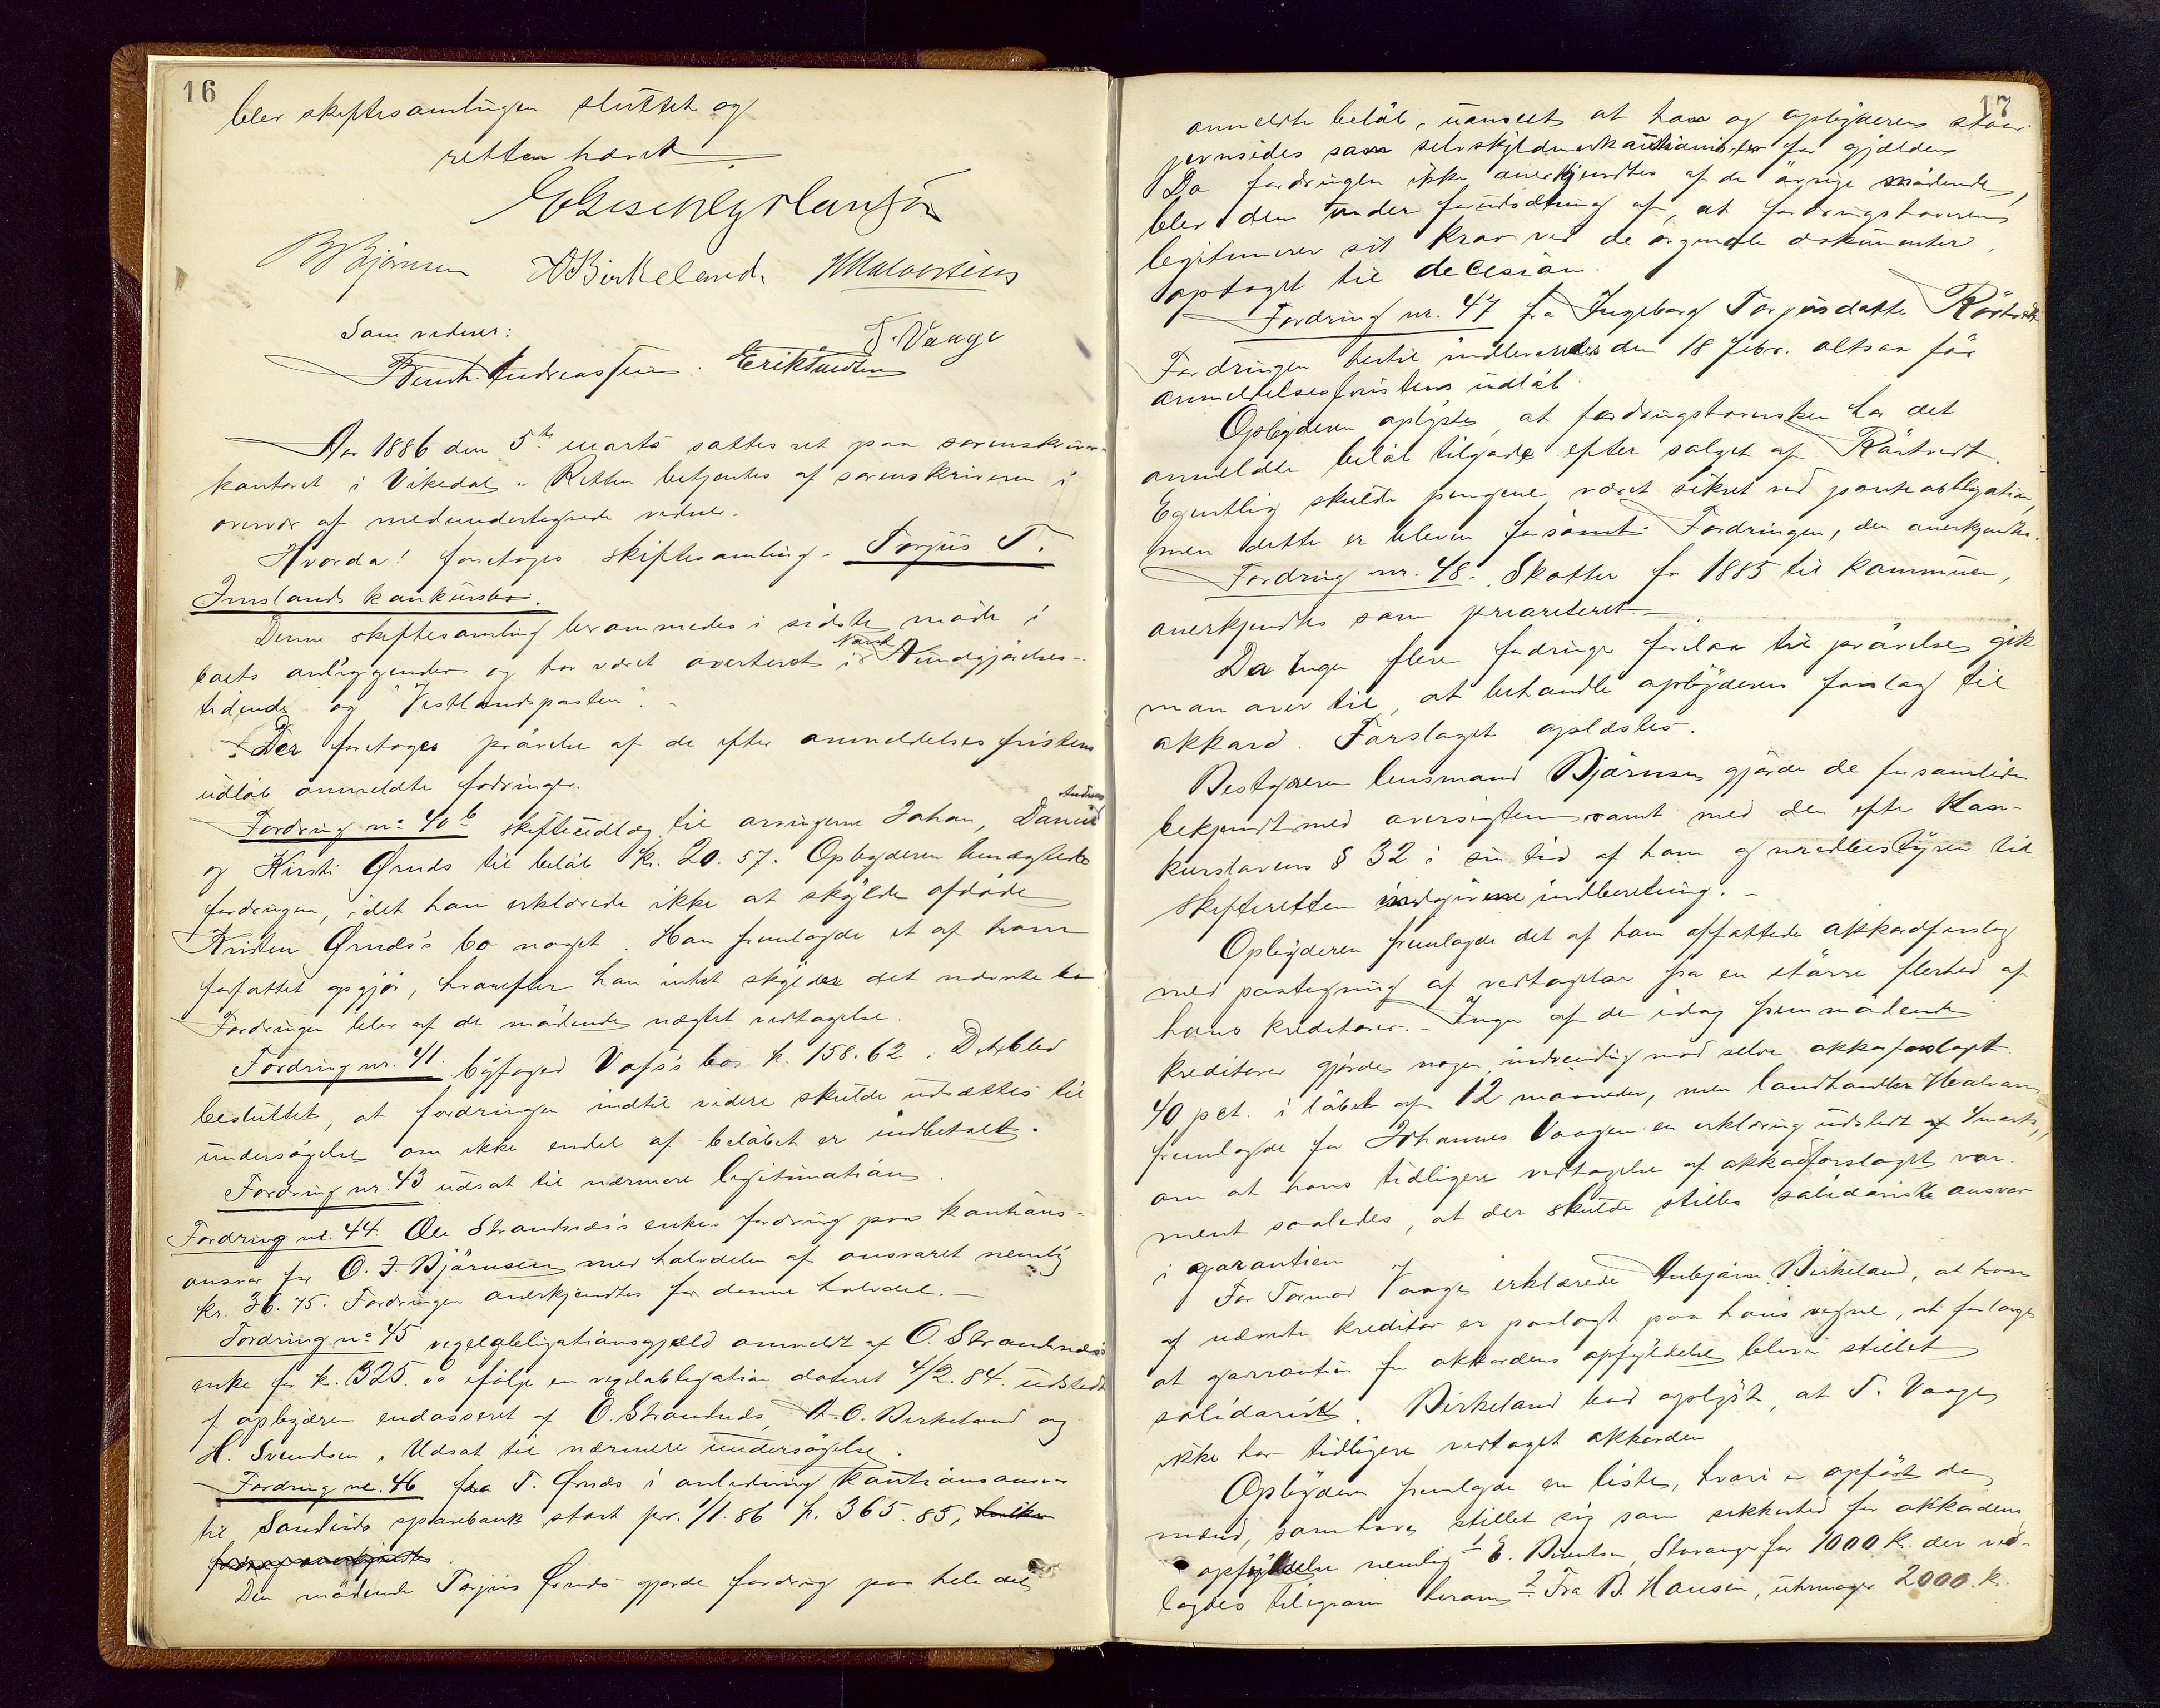 16
blev skiftesamlingen sluttet og
retten hævet
BBjørnsen ABirkeland. HHalvorsens
Som vidner: T. Vaage
Bernh. Andreassen. Erik Knudsen
Aar 1886 den 5te marts sattes ret paa sorenskriver-
kontoret i Vikedal. Retten betjentes af sorenskriveren i
overvær af medundertegnede vidner.
Hvorda! foretoges skiftesamling i Torjus T.
Imslands konkursbo.
Denne skiftesamling berammedes i sidste møde i
boets anliggender og har været averteret i Norsk Kundgjørelses-
tidende og "Vestlandsposten".
Der foretoges prøvelse af de efter anmeldelsesfristens
udløb anmeldte fordringer.
Fordring no 40 b skifteudlæg til arvingerne Johan, Daniel Andreas
og Kirsti Ørnds til beløb kr. 20.57. Opbyderen benægtede
fordringen, idet han erklærede ikke at skylde afdøde
Kristen Ørnds's bo noget. Han fremlagde et af ham
forfattet opgjør, hvorefter han intet skylder det nævnte bo
Fordringen blev af de mødende nægtet vedtagelse.
Fordring nr. 41. byfoged Vofs's bo k. 158.62. Det blev
besluttet, at fordringen indtil videre skulde udsættes til
undersøgelse om ikke endel af beløbet er indbetalt.
Fordring nr. 43 udsat til nærmere legitimation.
Fordring nr. 44. Ole Strandnæs's enkes fordring paa kautions-
ansvar for O. J. Bjørnsen med halvdelen af ansvaret nemlig
kr. 36.75. Fordringen anerkjendtes for denne halvdel. —
Fordring no 45 vexelobligationsgjæld anmeldt af O. Strandnæs's
enke for k. 325.00 ifølge en vexelobligation dateret 4/2. 84. udstedt
af opbyderen endosseret af O. Strandnæs, A. O. Birkeland og
H. Svendsen. Udsat til nærmere undersøgelse.
Fordring nr. 46 fra T. Ørnds i anledning kautionsansvar
til Sandeids sparebank stort pr. 1/1. 86 k. 365.85, hvilken
fordring anerkjendtes.
Den mødende Torjus Ørnds gjorde fordring paa hele det
17
anmeldte beløb, uanseet at han og opbyderen staar
jevnsides som selvskyldnerkautionister for gjælden
Da fordringen ikke anerkjendtes af de øvrige mødende,
blev den under forudsætning af, at fordringshaveren
legitimerer sit krav ved de orginale dokumenter,
optaget til decision.
Fordring nr. 47 fra Ingeborg Torjusdatter Rörtvedt
Fordringen hertil indleveredes den 18 febr. altsaa før
anmeldelsesfristens udløb.
Opbyderen oplyste, at fordringshaversken har det
anmeldte beløb tilgode efter salget af Rörtvedt.
Egentlig skulde pengene været sikret ved panteobligation,
men dette er bleven forsömt. Fordringen, den anerkjendtes.
Fordring nr. 48. Skatter for 1885 til kommunen,
anerkjendtes som prioriteret. —
Da ingen flere fordringer forelaa til prövelse gik
man over til, at behandle opbyderens forslag til
akkord. Forslaget oplæstes.
Bestyreren lensmand Björnsen gjorde de forsamlede
bekjendt med oversigten samt med den efter Kon-
kurslovens § 32 i sin tid af ham og medbestyrer til
skifteretten indgivne indberetning. —
Opbyderen fremlagde det af ham affattede akkordforslag
med paategning af vedtagelse fra en större flerhed af
hans kreditorer. — Ingen af de idag fremmødende
kreditorer gjorde nogen indvending mod selve akkordforslaget.
40 pct. i løbet af 12 maaneder, men landhandler Halvorsen
fremlagde for Johannes Vaagen en erklæring udstedt af 4 marts,
om at hans tidligere vedtagelse af akkordforslaget var
ment saaledes, at der skulde stilles solidarisk ansvar
i garantien
For Tormod Vaage erklærede Aubjørn Birkeland, at ham
af nævnte kreditor er paalagt paa hans vegne, at forlange
at garrantien for akkordens opfyldelse bliver stillet
solidarisk. Birkeland bad oplyst, at T. Vaage
ikke har tidligere vedtaget akkorden
Opbyderen fremlagde en liste, hvori er opført de
mænd, som have stillet sig som sikkerhed for akkordens
opfyldelse nemlig 1 E. Berentsen, Stavanger for 1000 k. der ved-
lagdes telegram herom 2 Fra B. Hansen, uhrmager 2000 k.